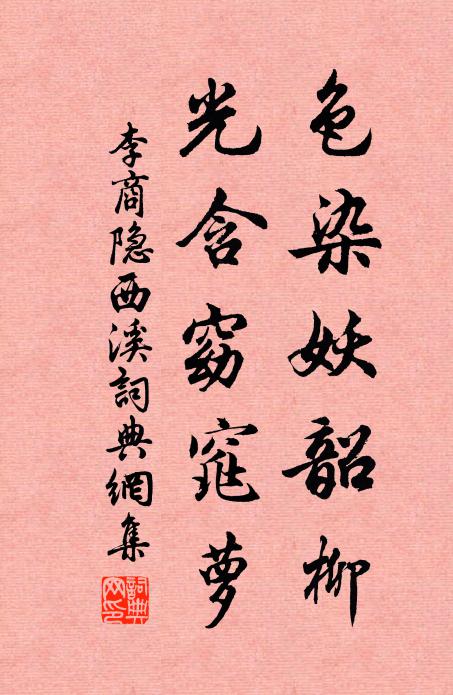 色染妖韶柳
光含窈窕萝
李商隐西溪詞典網集
詞典网印